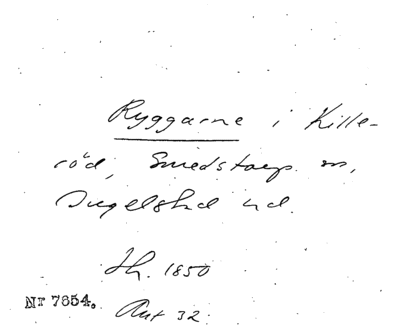 Ryggarne i Kille-
röd, Smedstorp sn,
Ingelstad hd.
Sk. 1850
Nr 7654.
Ant 32.